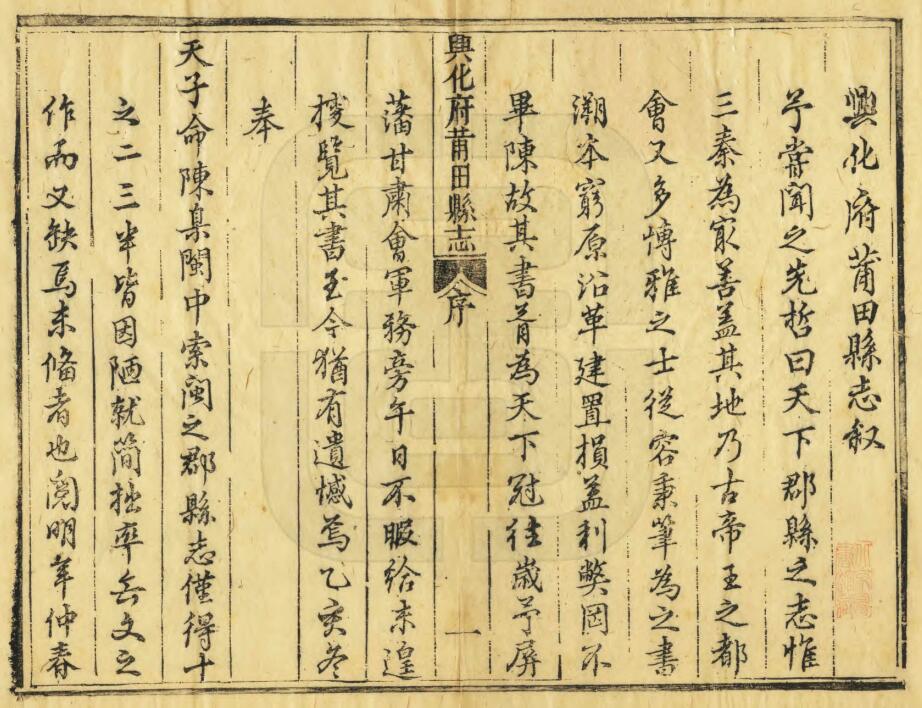 興化府莆田縣志叙
予嘗聞之先哲曰天下郡縣之志惟
三秦為最善蓋其地乃古帝王之都
會又多博雅之士從容秉筆為之書
溯本窮原沿革建置損益利獘罔不
畢陳故其書音為天下冠徃歲予屏
興化府莆田縣志
序
一
藩甘肅會軍務旁午日不暇給未遑
搜覽其書至今猶有遺憾焉乙亥冬
奉
天子命陳臬閩中索閩之郡縣志僅得十
之二三半皆因陋就簡拙率無文之
作而又缺焉未修者也閱明年仲春